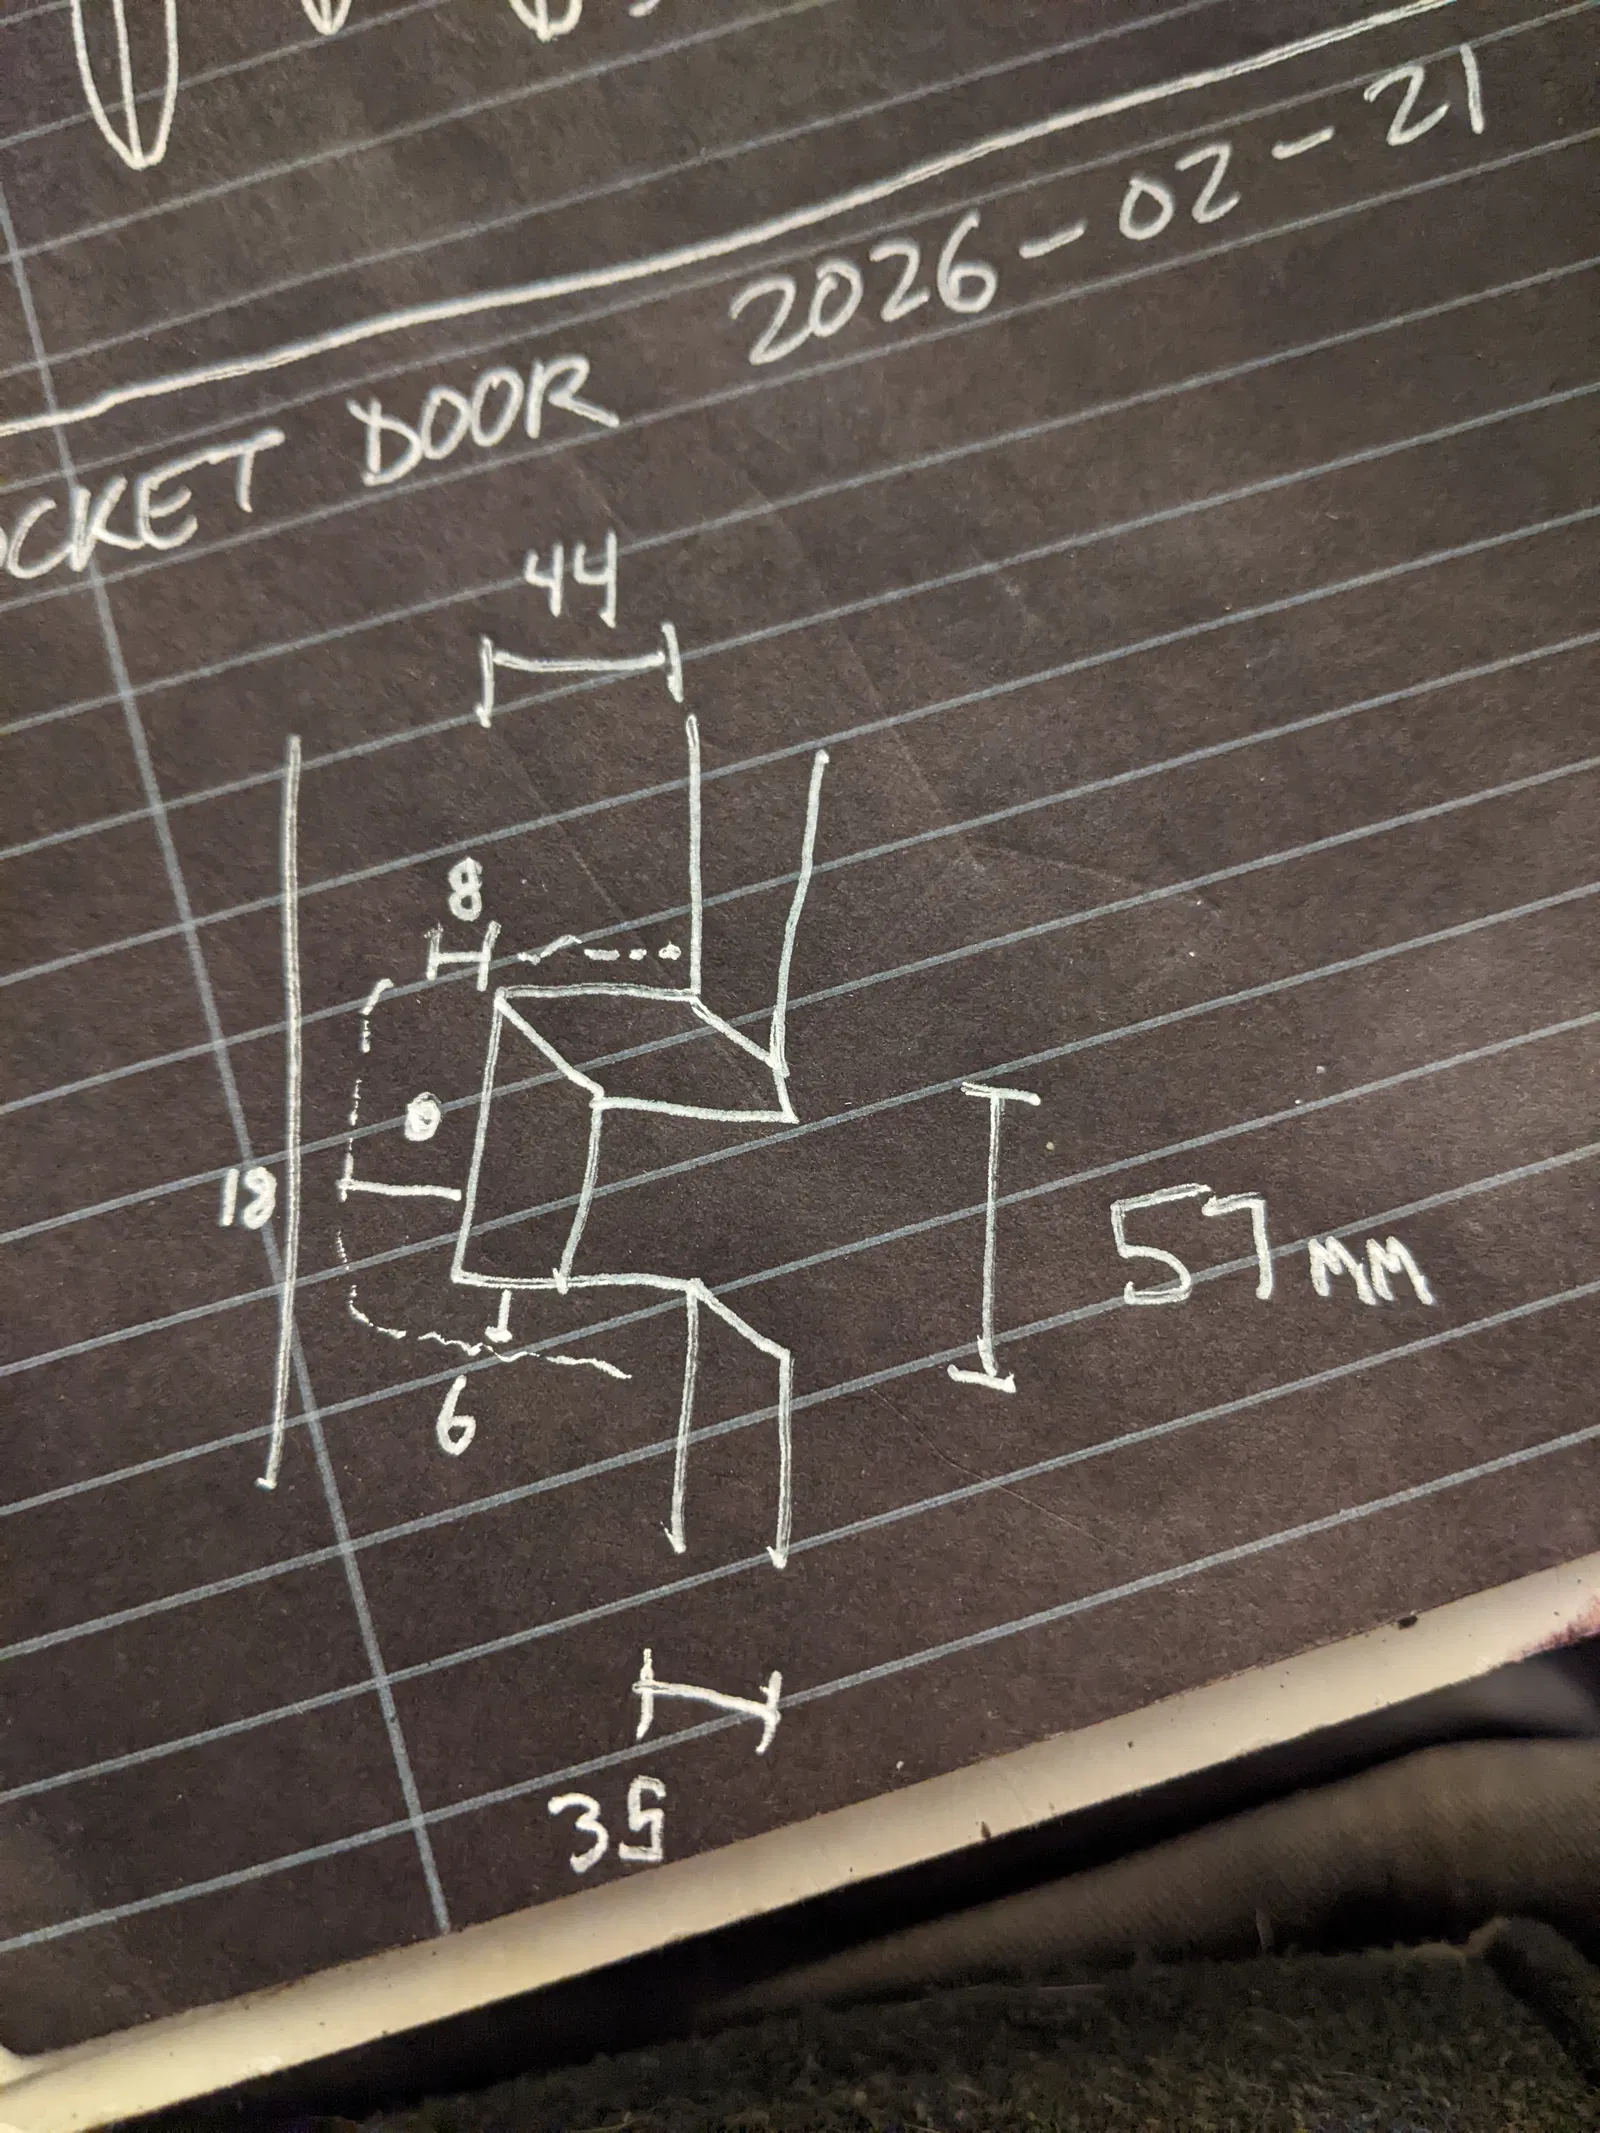 OCKET DOOR 2026-02-21
44
8
18
57 MM
6
35